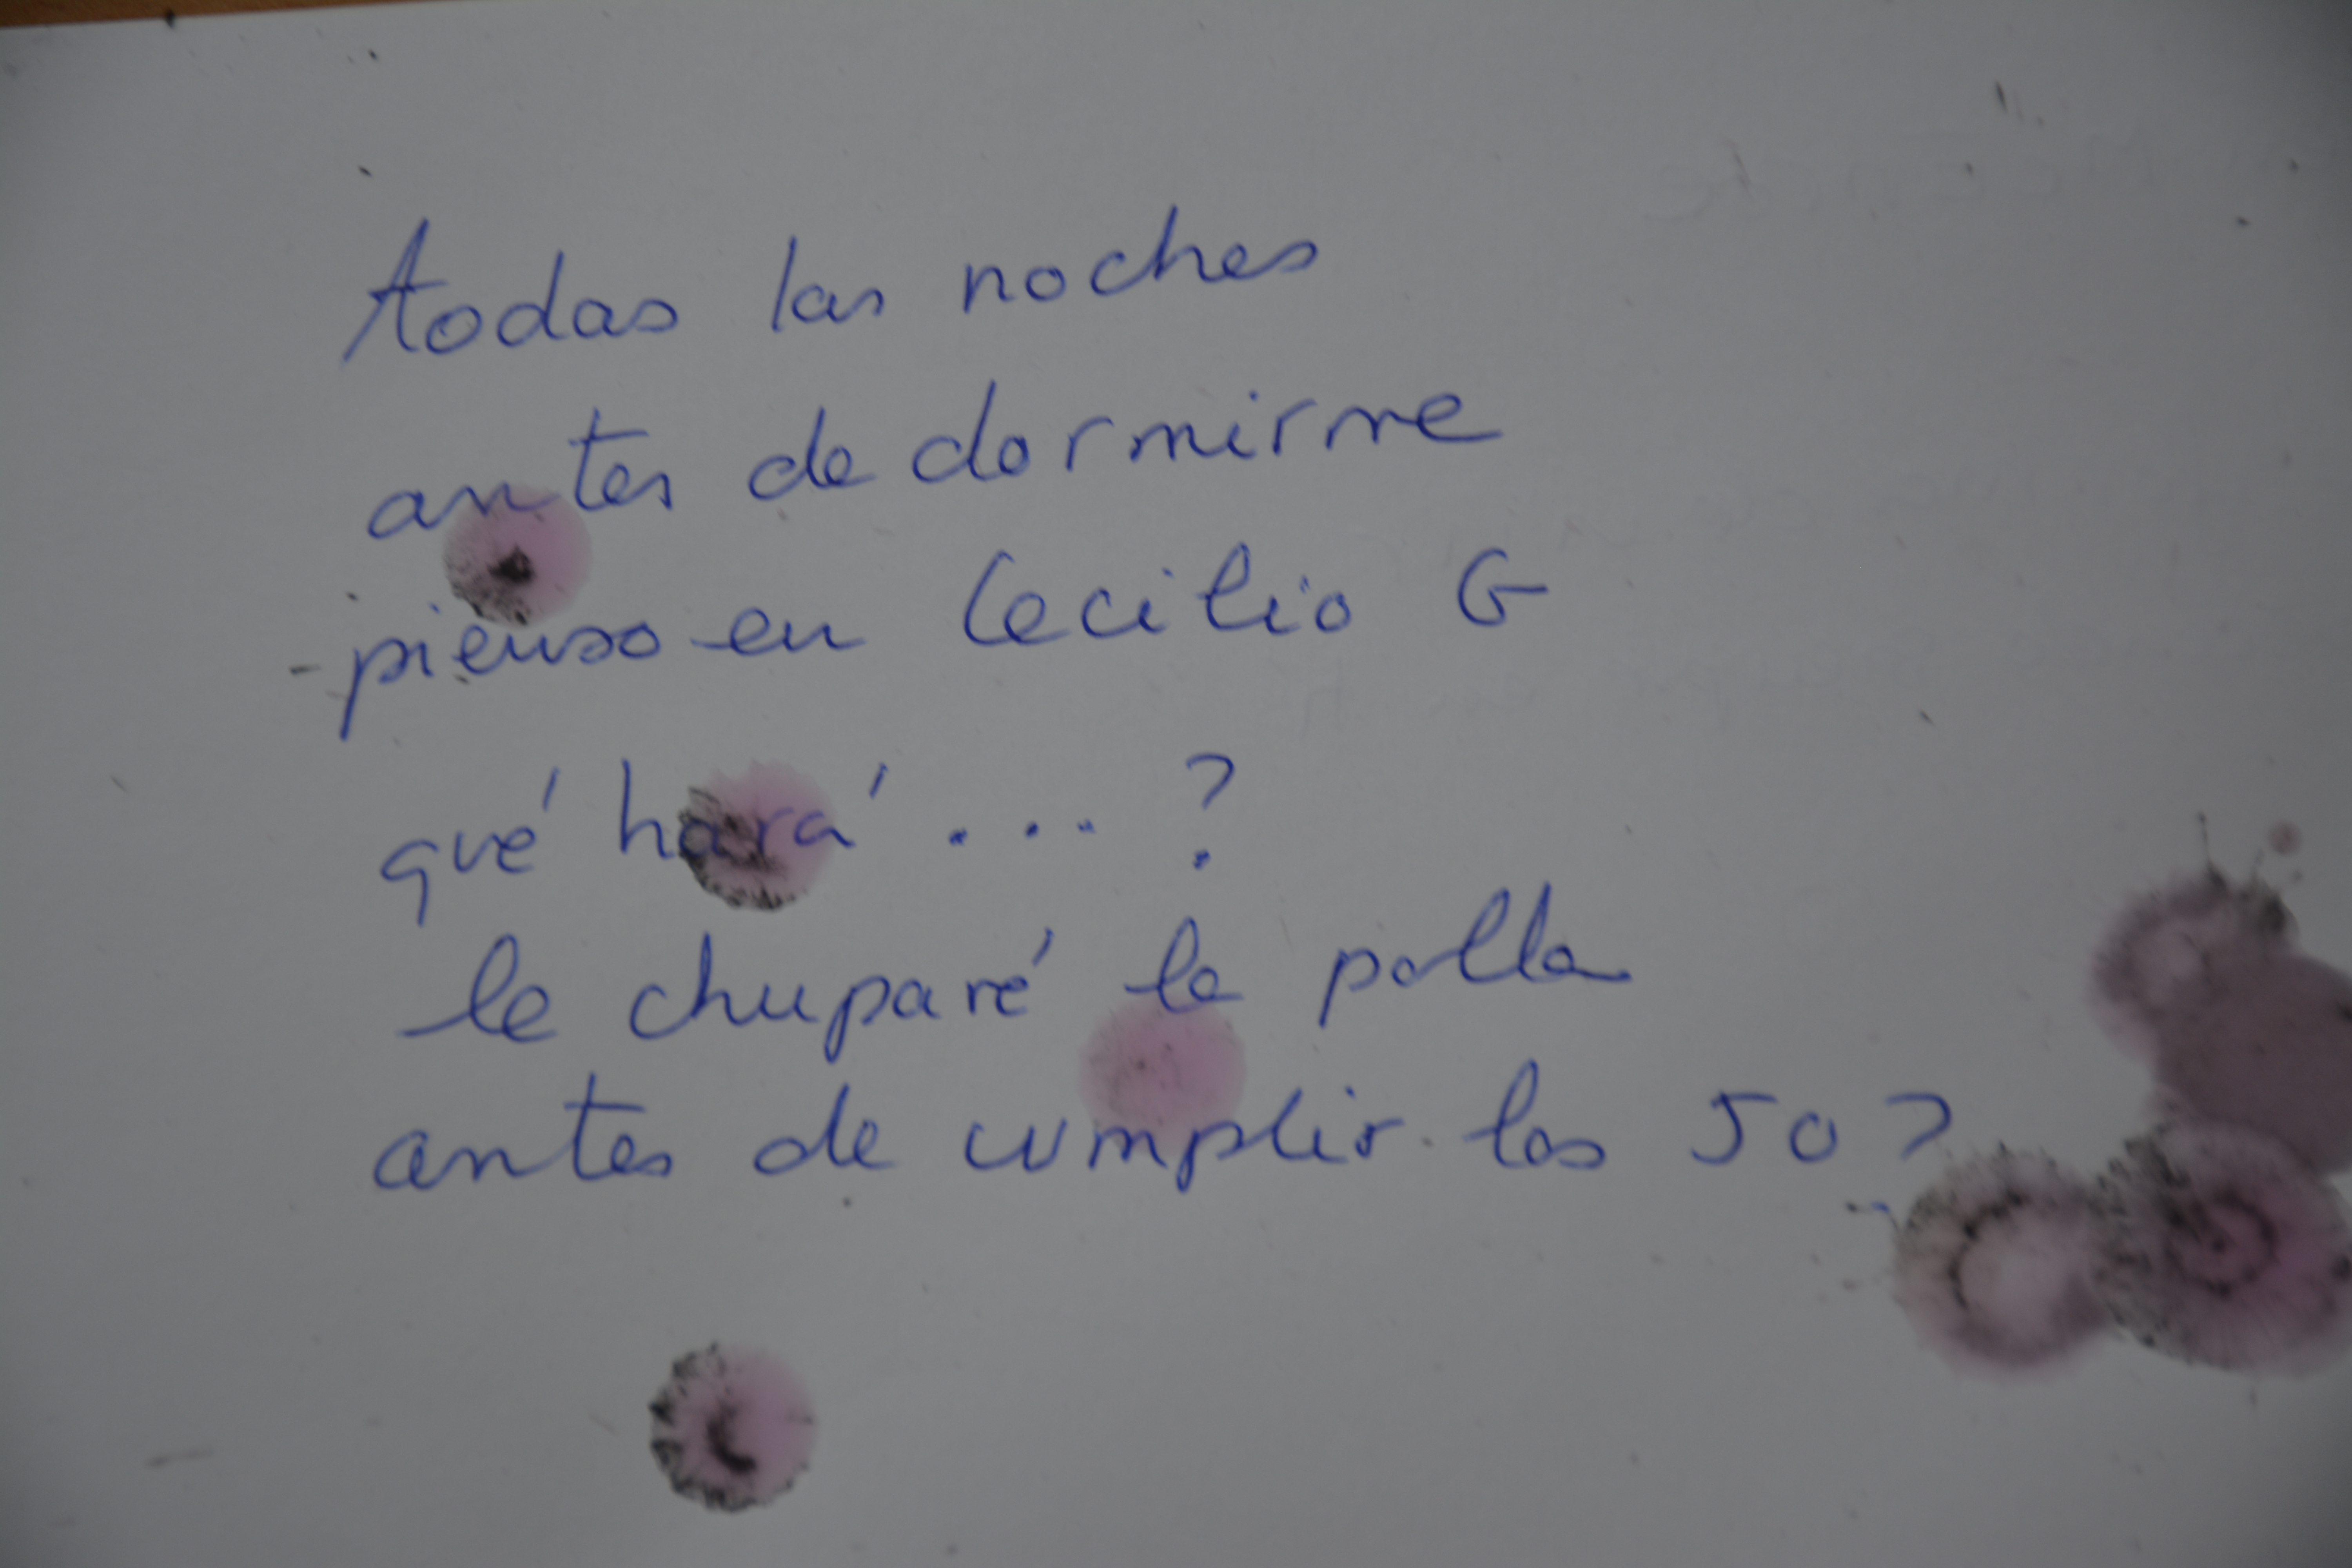 todas las noches
antes de dormirme
pienso en Cecilio G
qué hará ... ?
le chuparé la polla
antes de cumplir los 50?